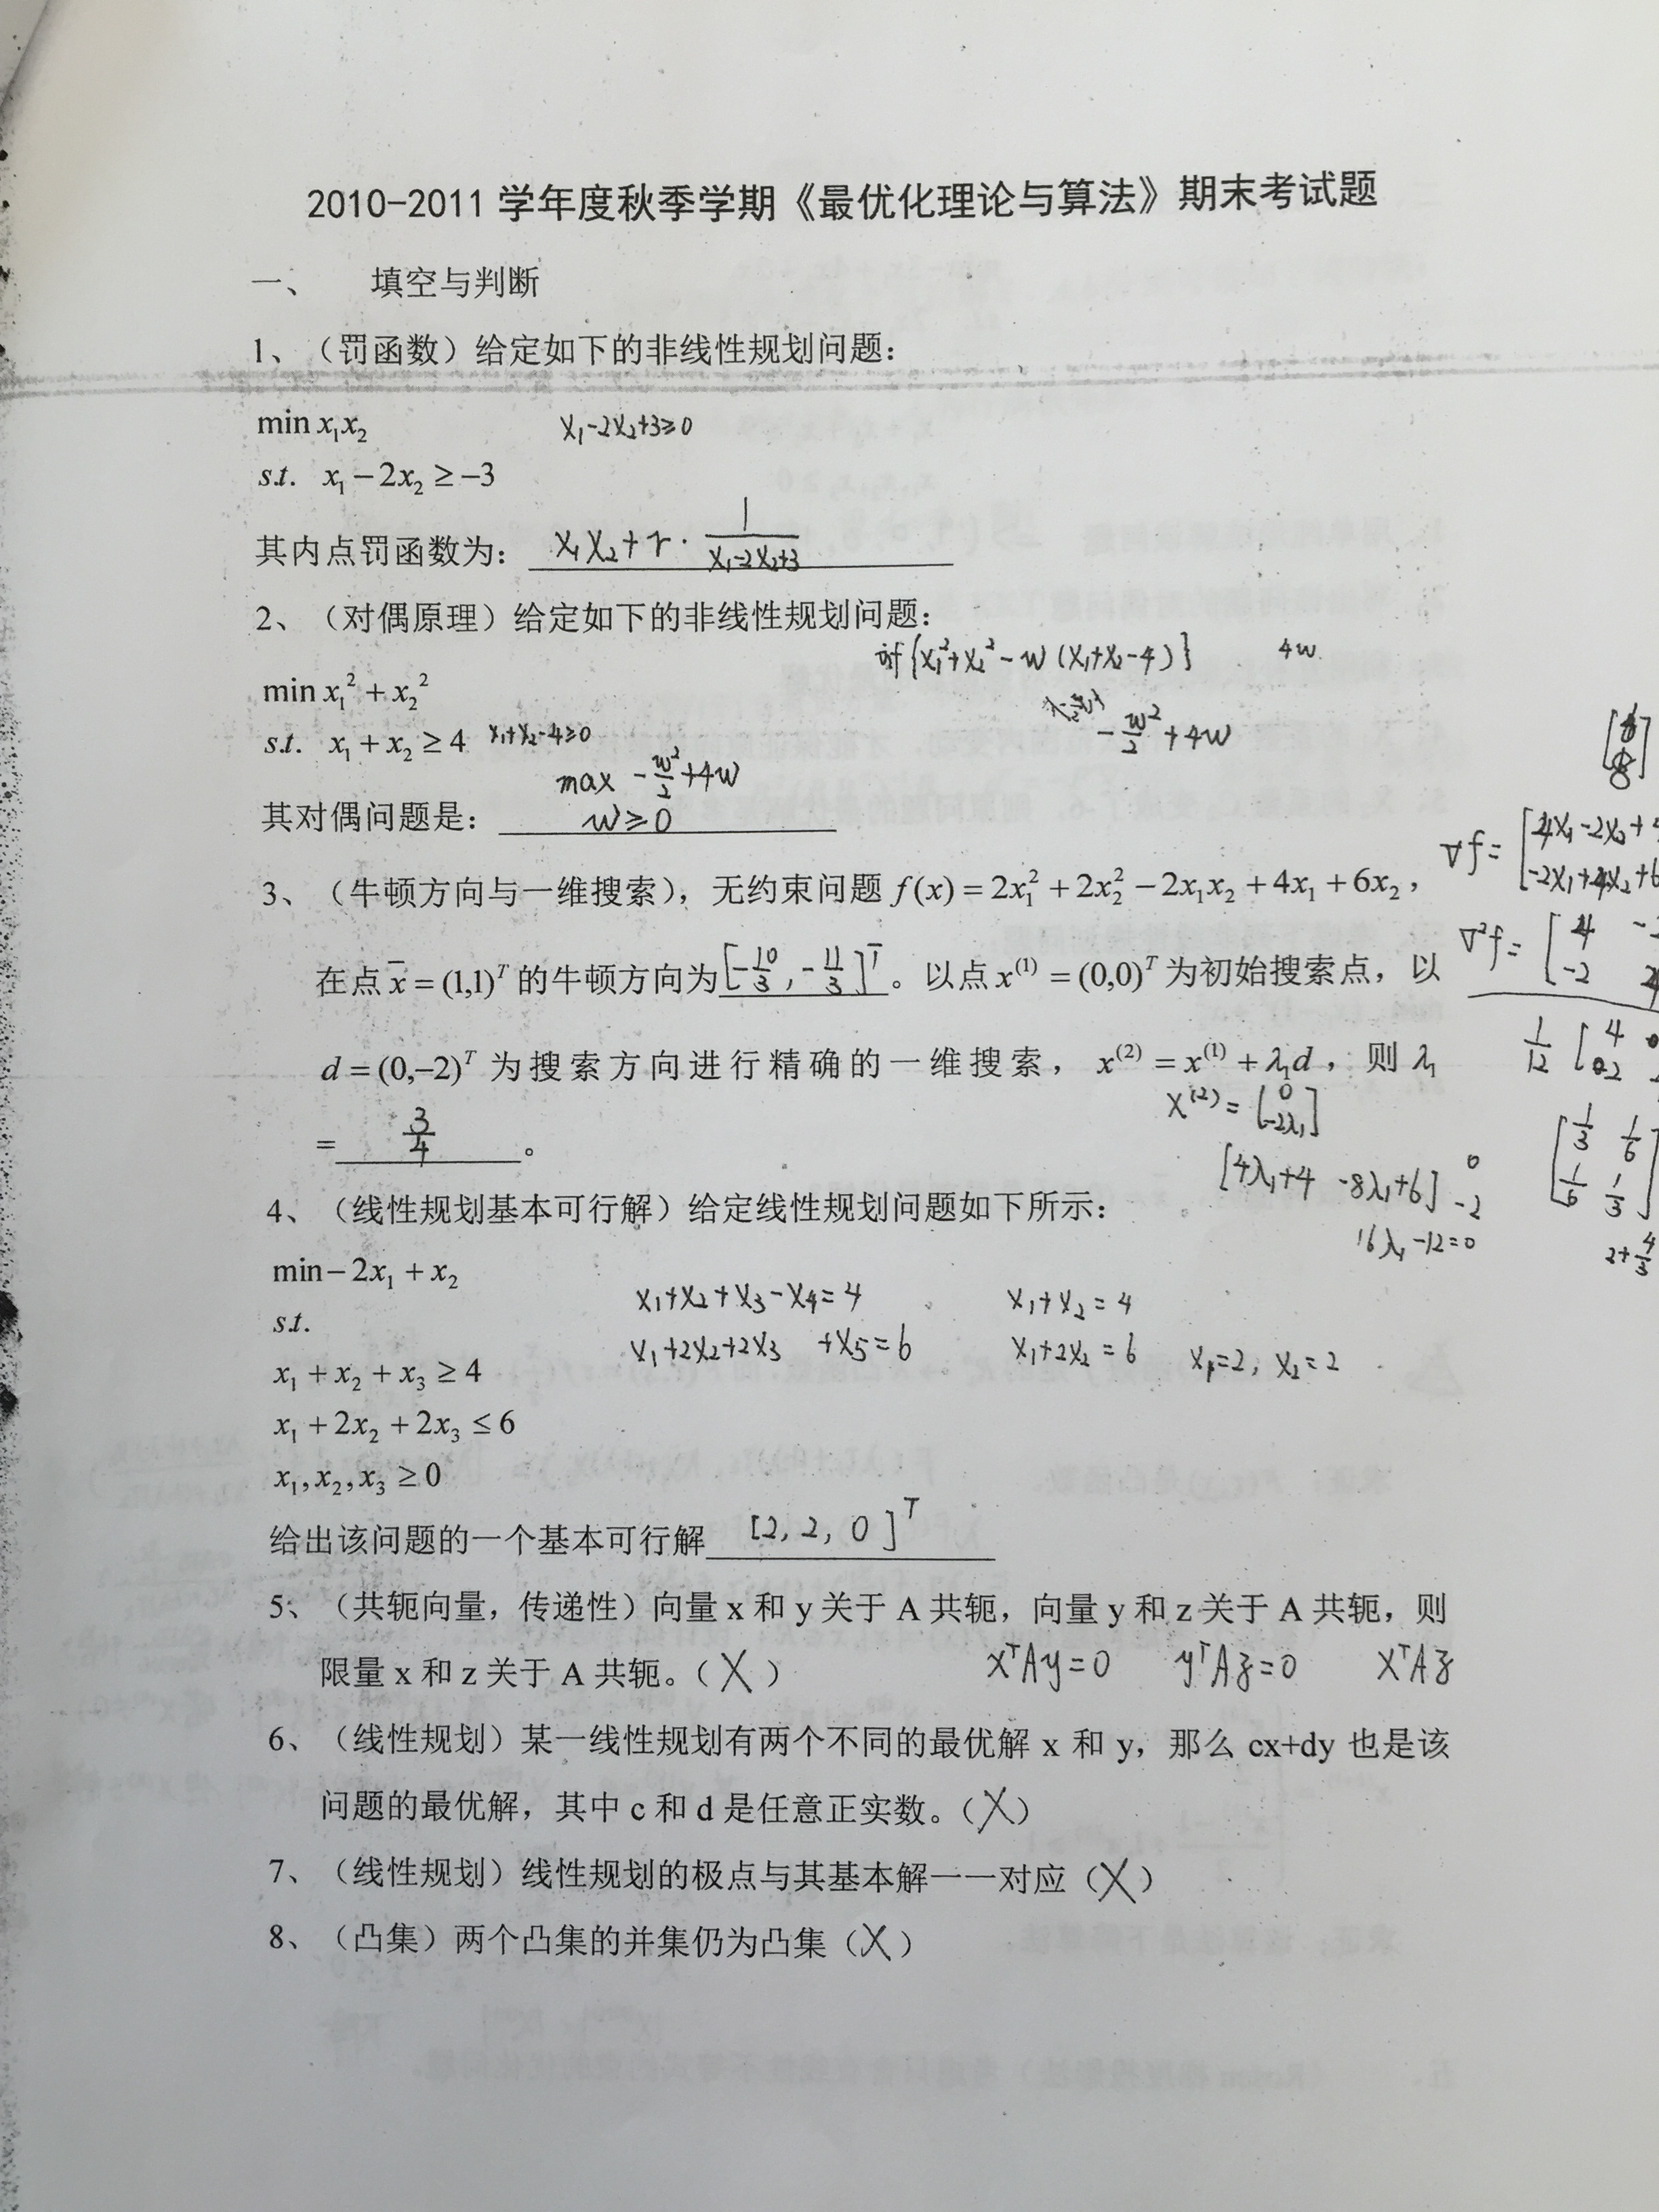 2010-2011 学年度秋季学期《最优化理论与算法》期末考试题
一、 填空与判断
1、（罚函数）给定如下的非线性规划问题：
min x₁x₂ x₁-2x₂+3≥0
s.t. x₁-2x₂≥-3
其内点罚函数为： x₁x₂+r·1/(x₁-2x₂+3)
2、（对偶原理）给定如下的非线性规划问题：
inf{x₁²+x₂²-w(x₁+x₂-4)} 4w
min x₁²+x₂²
-w²/2+4w
s.t. x₁+x₂≥4 x₁+x₂-4≥0
max -w²/2+4w
其对偶问题是： w≥0
3、（牛顿方向与一维搜索），无约束问题 f(x)=2x₁²+2x₂²-2x₁x₂+4x₁+6x₂，
∇f=[4x₁-2x₂+4
-2x₁+4x₂+6
在点 x̄=(1,1)ᵀ 的牛顿方向为[-10/3,-11/3]ᵀ。以点 x⁽¹⁾=(0,0)ᵀ 为初始搜索点，以
∇²f=[4 -2
-2 4
d=(0,-2)ᵀ 为搜索方向进行精确的一维搜索，x⁽²⁾=x⁽¹⁾+λ₁d，则 λ₁
x⁽²⁾=[0 -2λ₁]
= 3/4 。
[1/3 1/6
1/6 1/3]
[4λ₁+4 -8λ₁+6] 0 -2
16λ₁-12=0
2+4/3
4、（线性规划基本可行解）给定线性规划问题如下所示：
min-2x₁+x₂
s.t.
x₁+x₂+x₃-x₄=4 x₁+x₂=4
x₁+2x₂+2x₃ +x₅=6 x₁+2x₂=6 x₁=2, x₂=2
x₁+x₂+x₃≥4
x₁+2x₂+2x₃≤6
x₁,x₂,x₃≥0
给出该问题的一个基本可行解 [2,2,0]ᵀ
5、（共轭向量，传递性）向量 x 和 y 关于 A 共轭，向量 y 和 z 关于 A 共轭，则
限量 x 和 z 关于 A 共轭。（X） xᵀAy=0 yᵀAz=0 xᵀAz
6、（线性规划）某一线性规划有两个不同的最优解 x 和 y，那么 cx+dy 也是该
问题的最优解，其中 c 和 d 是任意正实数。（X）
7、（线性规划）线性规划的极点与其基本解一一对应（X）
8、（凸集）两个凸集的并集仍为凸集（X）